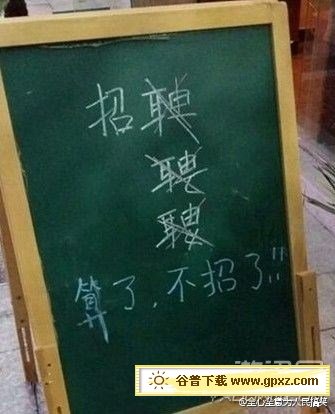 招聘
聘
聘
算了，不招了!!
谷普下载 www.gpxz.com
@全心全意为人民搞笑